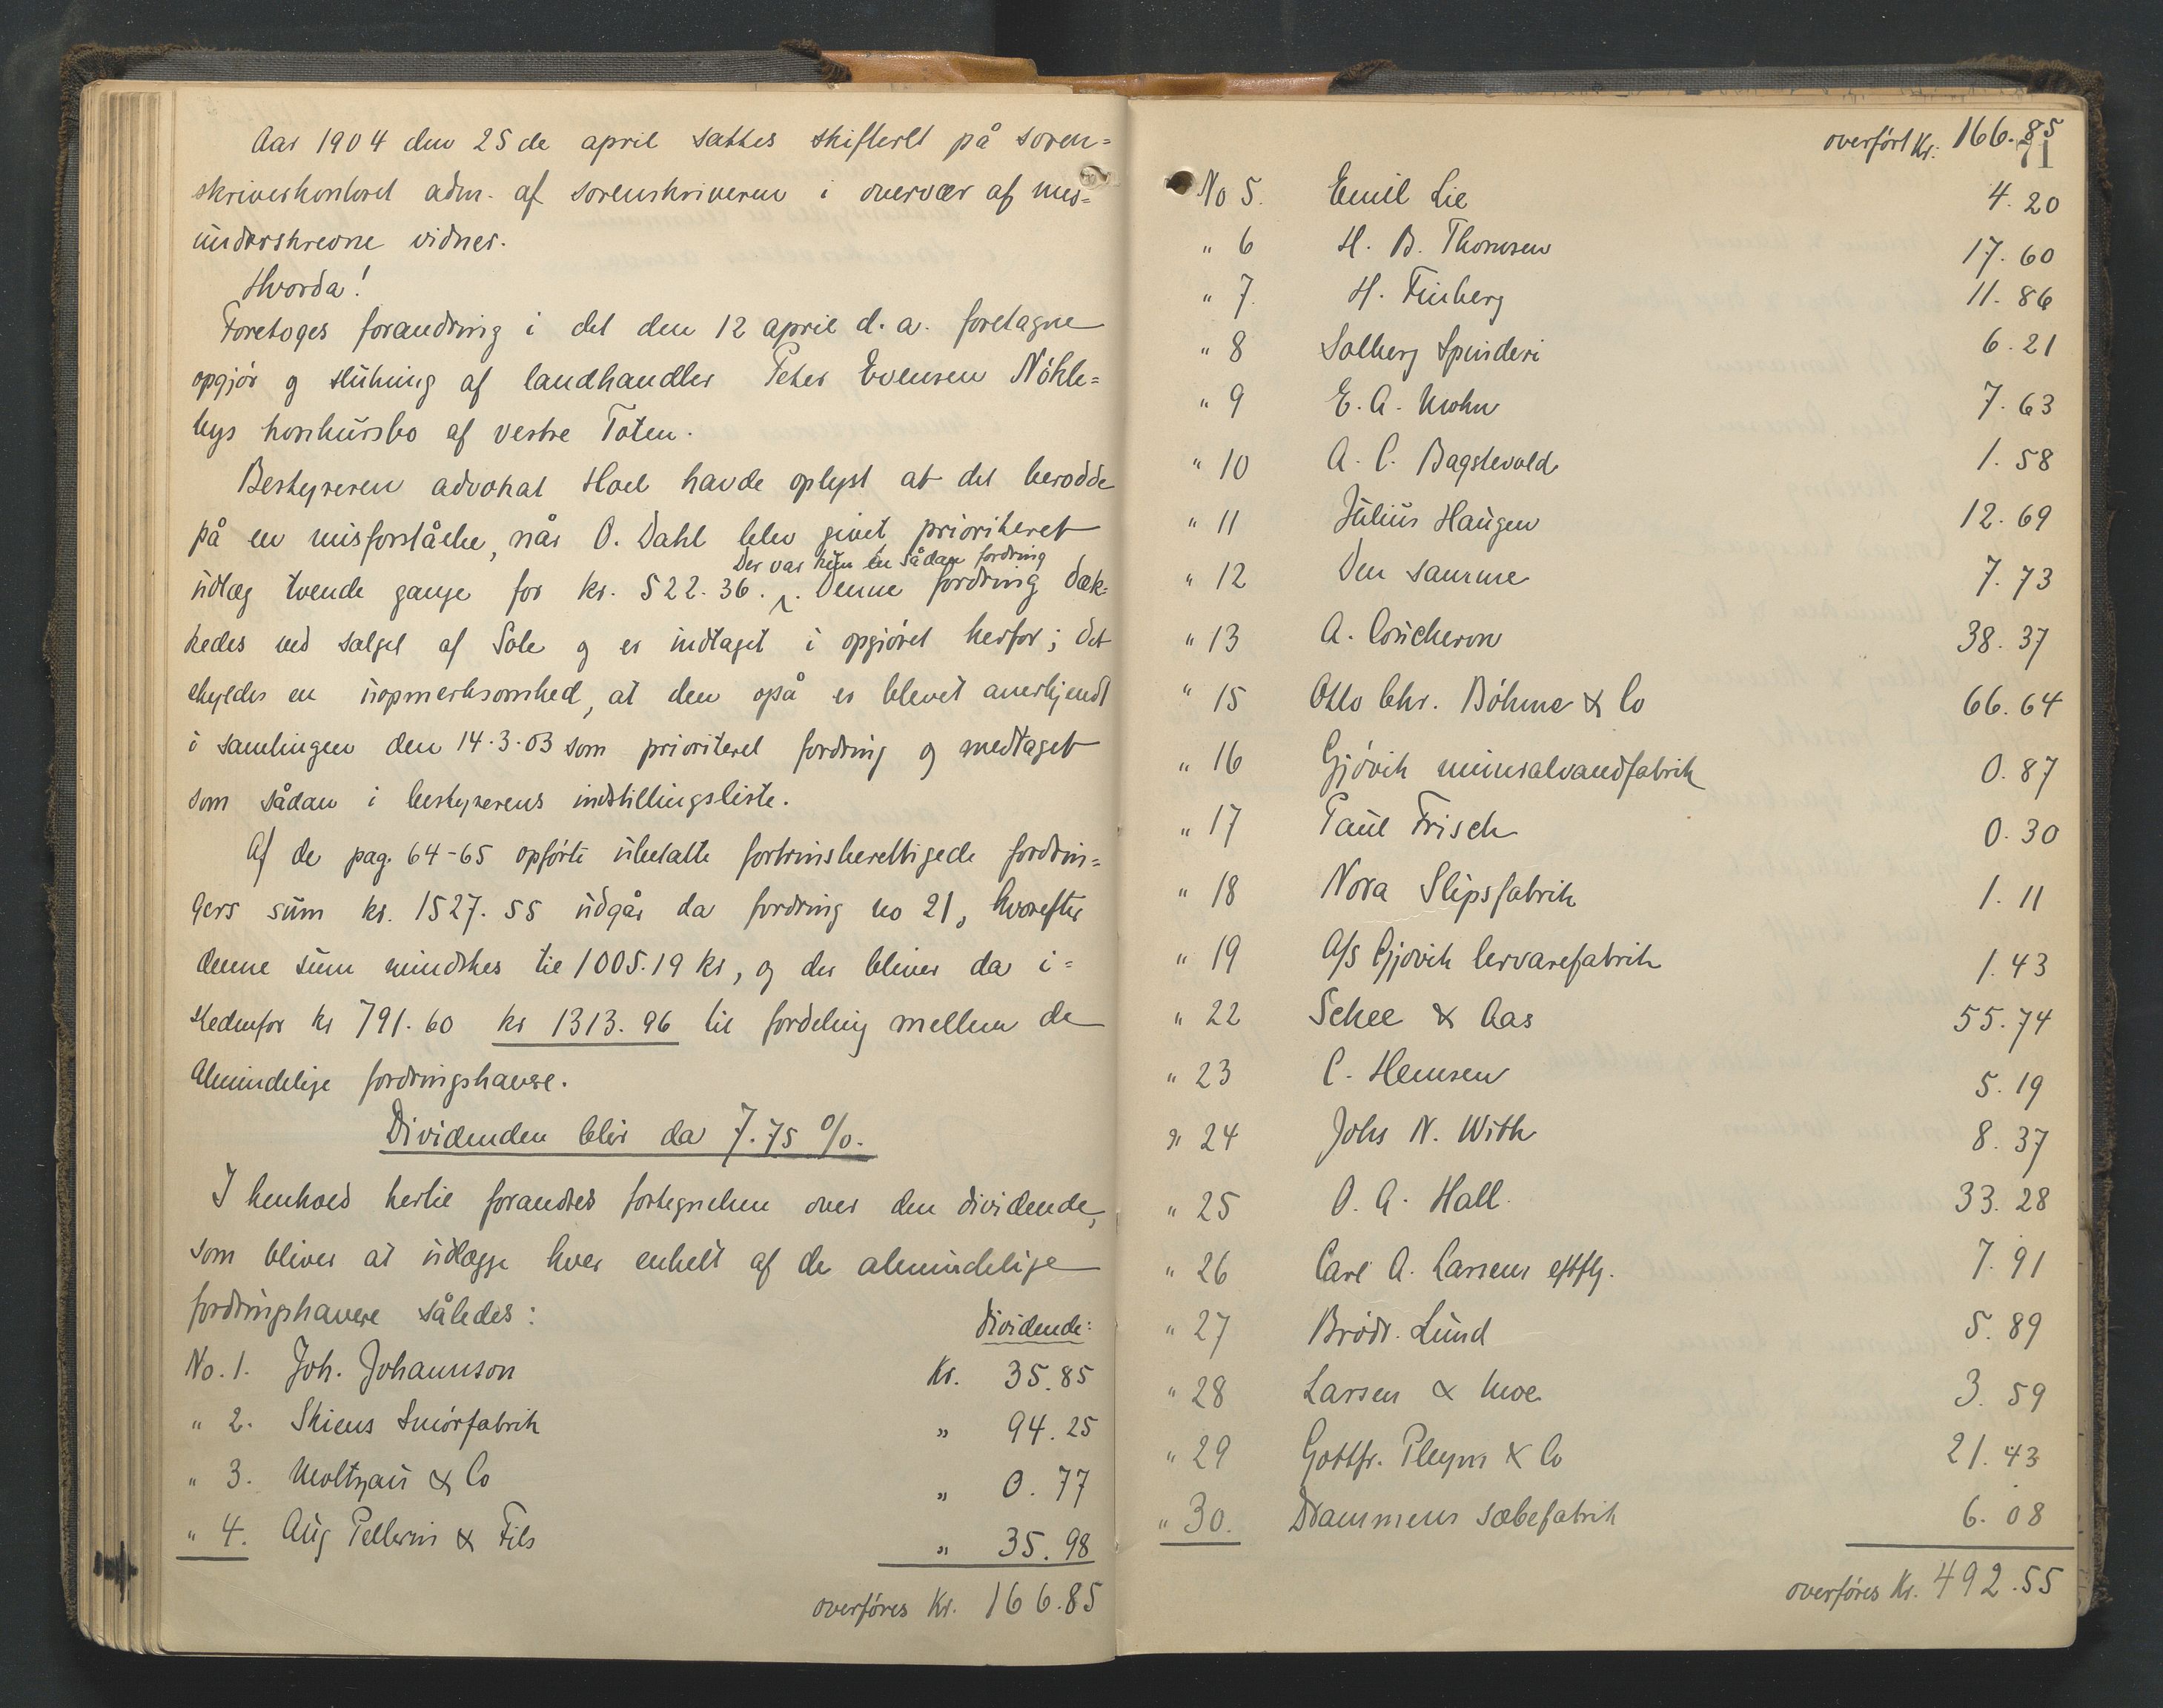 Aar 1904 den 25de april sattes skifteret på soren=
skriverkontoret adm. af sorenskriveren i overvær af med=
underskrevne vidner.
Hvorda!
Foretoges forandring i det den 12 april d.a. foretagne
opgjør og slutning af landhandler Peter Evensen Nökle=
bys konkursbo af vestre Toten.
Bestyreren advokat Hoel havde oplyst at det berodde
på en misforståelse, når O. Dahl blev givet prioriteret
Der var kun en sådan fordring
udlæg tvende gange for kr. 522.36. Denne fordring dæk=
kedes ved salget af Sole og er indtaget i opgjöret herfor; det
skyldes en uopmerksomhed, at den også er blevet anerkjendt
i samlingen den 14.3.03 som prioriteret fordring og medtaget
som sådan i bestyrerens indstillingsliste.
Af de pag. 64-65 opförte ubetalte fortrinsberettigede fordrin=
gers sum kr. 1527.55 udgår da fordring no 21, hvorefter
denne sum mindskes til 1005.19 kr, og der bliver da i=
stedenfor kr 791.60 kr 1313.96 til fordeling mellem de
almindelige fordringshavere.
Dividenden blir da 7.75 %.
I henhold hertil forandres fortegnelsen over den dividende,
som bliver at udlægge hver enkelt af de almindelige
fordringshavere således:
dividende:
No. 1. Joh. Johannson Kr. 35.85
" 2. Skiens Smörfabrik " 94.25
" 3. Moltzau & Co " 0.77
" 4. Aug Pellerin & Fils " 35.98
overföres Kr. 166.85
overfört Kr. 166.85
71
No 5. Emil Lie 4.20
" 6 H. B. Thomsen 17.60
" 7. H. Finberg 11.86
" 8 Solberg Spinderi 6.21
" 9 E. A. Mohn 7.63
" 10 A. C. Bagstevold 1.58
" 11 Julius Haugen 12.69
" 12 Den samme 7.73
" 13 A. Coucheron 38.37
" 15 Otto Chr. Böhme & Co 66.64
" 16 Gjövik mineralvandfabrik 0.87
" 17 Paul Frisch 0.30
" 18 Nora Slipsfabrik 1.11
" 19 A/S Gjövik lervarefabrik 1.43
" 22 Schee & Aas 55.74
" 23 C. Hemsen 5.19
" 24 Johs N. With 8.37
" 25 O. A. Hall. 33.28
" 26 Carl A. Larsens eftflg. 7.91
" 27 Brödr. Lund 5.89
" 28 Larsen & Moe 3.59
" 29 Gottfr. Pleym & Co 21.43
" 30. Drammens sæbefabrik 6.08
overföres Kr. 492.55